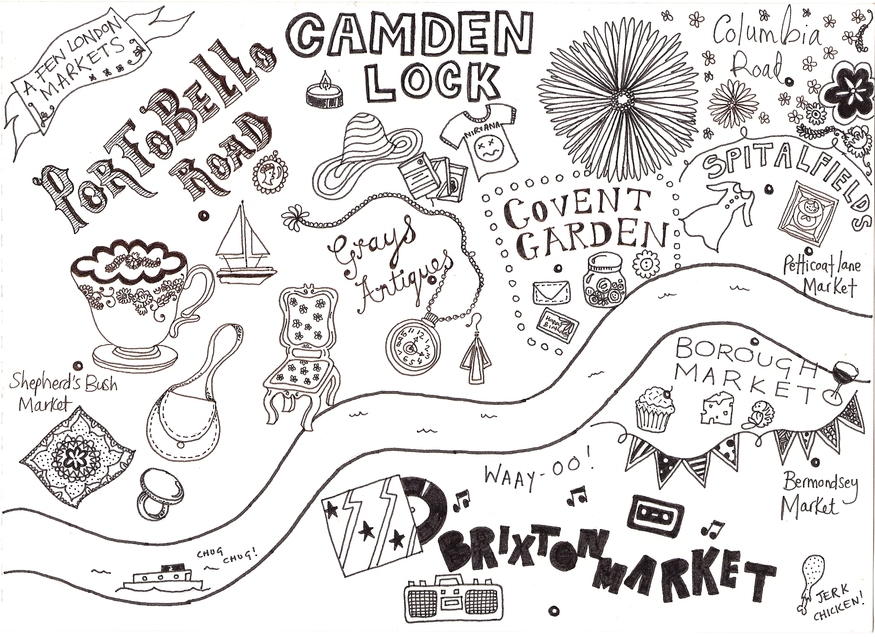 A FEW LONDON
MARKETS
PORTOBELLO
ROAD
CAMDEN
LOCK
NIRVANA
Columbia
Road
SPITALFIELDS
COVENT
GARDEN
HAPPY
Petticoat lane
Market
Grays
Antiques
Shepherd's Bush
Market
BOROUGH
MARKET
Bermondsey
Market
WAAY-OO!
BRIXTON
MARKET
CHUG
CHUG!
JERK
CHICKEN!